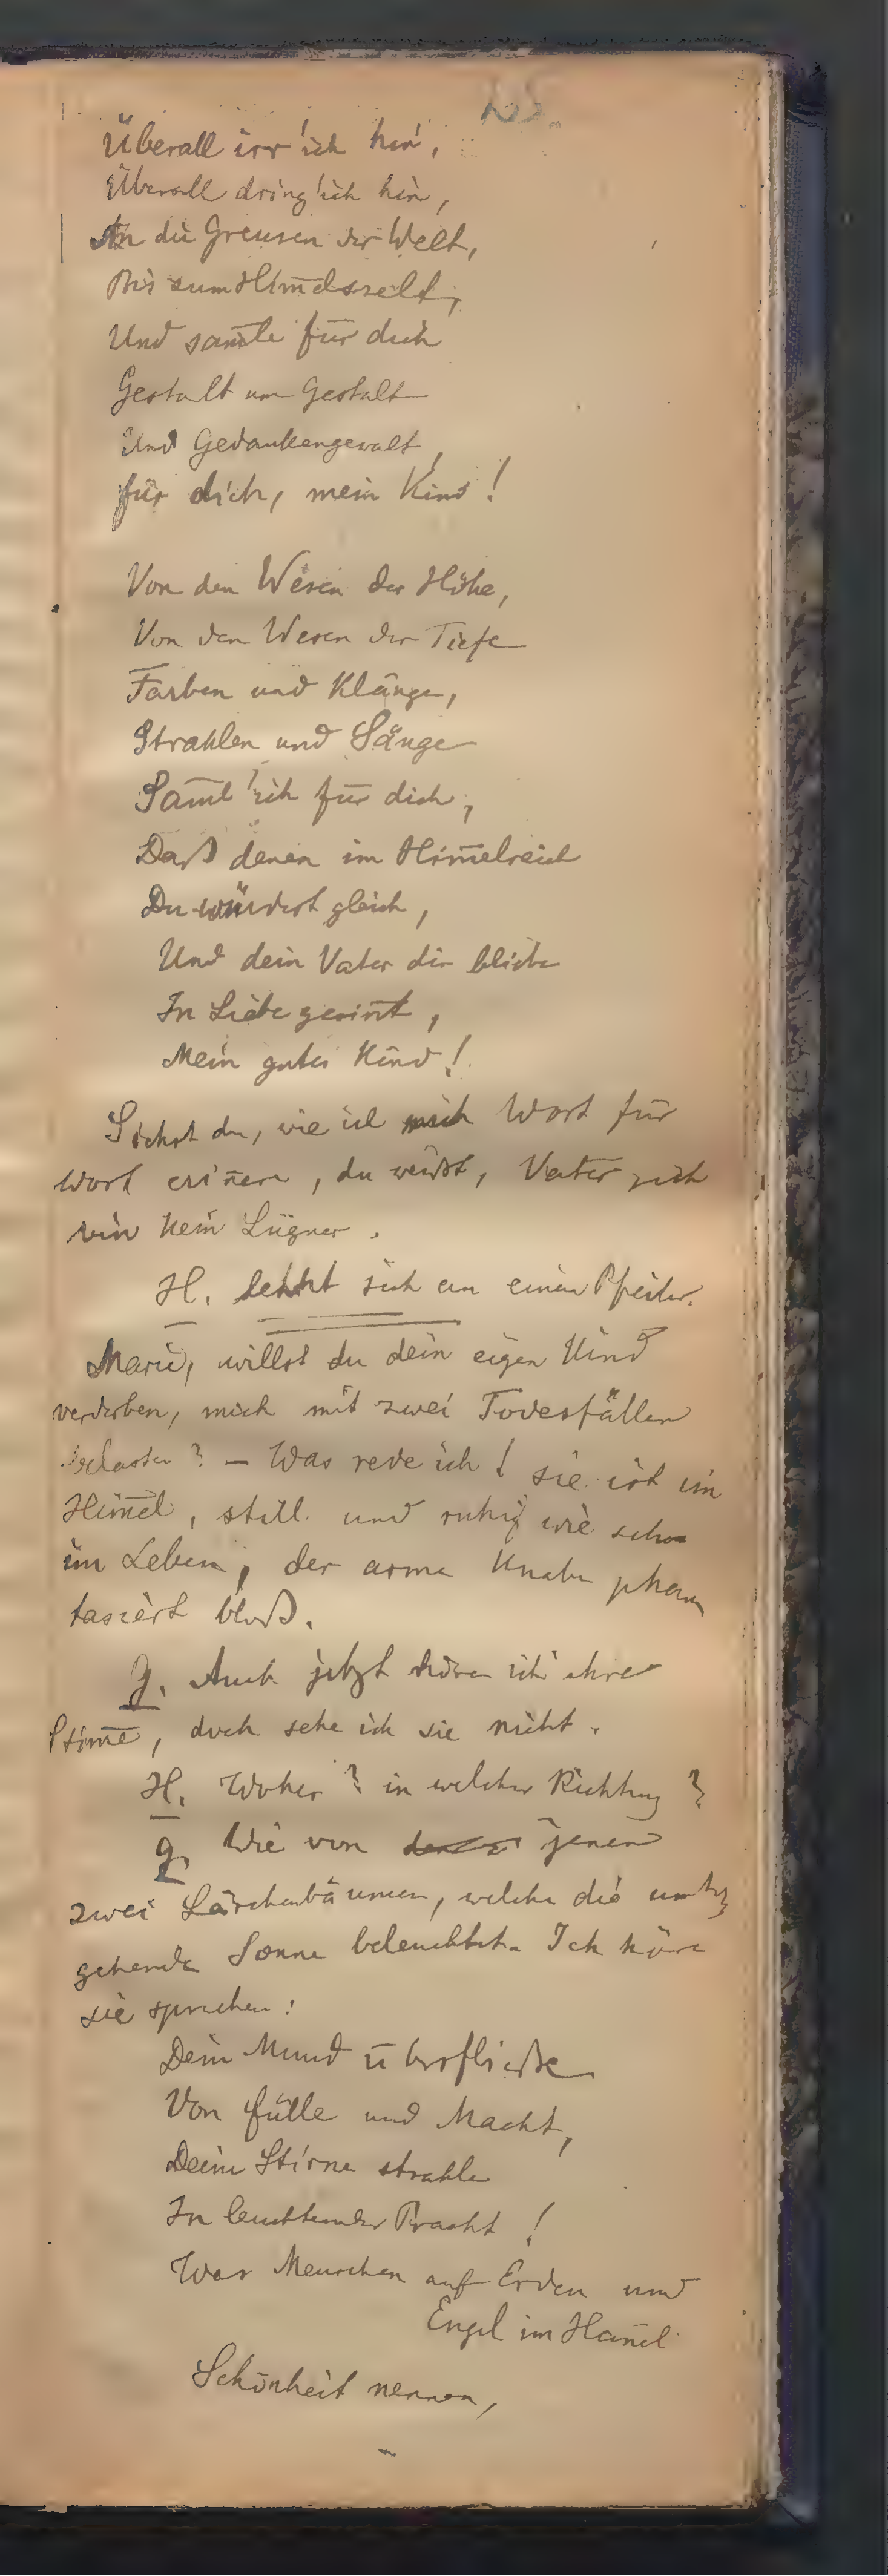 Überall irr' ich hin,
Überall dring' ich hin,
An die Grensen der Welt,
Bis zum Him̅elszelt,
Und sam̅le für dich
Gestalt um Gestalt
Und Gedankengewalt,
für dich, mein Kind!
Von den Wesen der Höhe,
Von den Wesen der Tiefe
Farben und Klänge,
Strahlen und Sänge
Sam̅l' ich für dich,
Daß denen im Him̅elreich
Du würdest gleich,
Und dein Vater dir bliebe
In Liebe gesin̅t,
Mein gutes Kind!
Siehst du, wie ich mich Wort für
Wort erin̅ere, du weißt, Vater ich
bin kein Lügner.
H. lehnt sich an einen Pfeiler.
Marie, willst du dein eigen Kind
verderben, mich mit zwei Todesfällen
belasten? – Was rede ich! sie ist im
Him̅el, still und ruhig wie schon
im Leben, der arme Knabe phan
tasiert bloß.
g. Auch jetzt höre ich ihre
Stim̅e, doch sehe ich sie nicht.
H. Woher? in welcher Richtung?
g. Wie von jenen
zwei Lärchenbäumen, welche die unter
gehende Sonne beleuchtet. Ich höre
sie sprechen:
Dein Mund überfließe
Von Fülle und Macht,
Deine Stirne strahle
In leuchtender Pracht!
Was Menschen auf Erden und
Engel im Him̅el
Schönheit nennen,